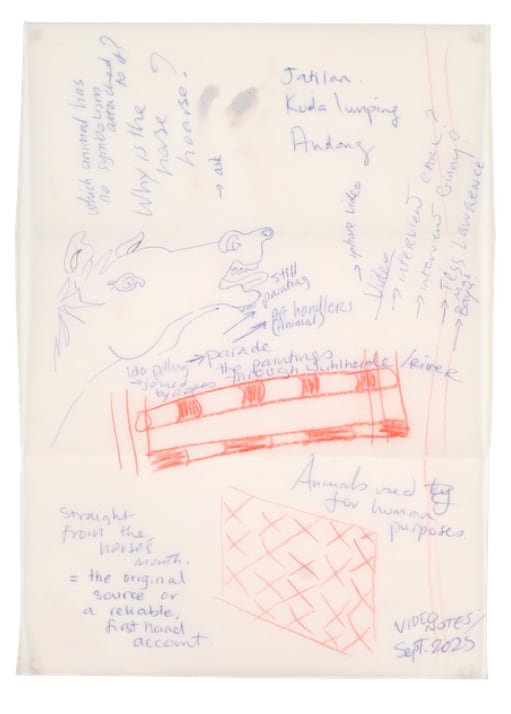 which animal has
no symbolism
attached
to it?
Why is the
horse
hoarse?
→ ask
Jatilan.
Kuda lumping
Andong
→ iphone video
Video
→ interview Carl?
→ interview Ginny?
→ Tess Lawrence
→
still
painting
Art handlers
(Animal)
→ parade
the paintings
through Wuhlheide / River
Ida pulling
→ joined
by ropes
Animals used
for human
purposes.
straight
from the
horses
mouth.
= the original
source or
a reliable,
first hand
account.
VIDEO NOTES/
Sept. 2025